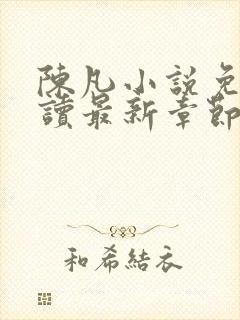 陳凡小說免
讀最新章節
和希結衣